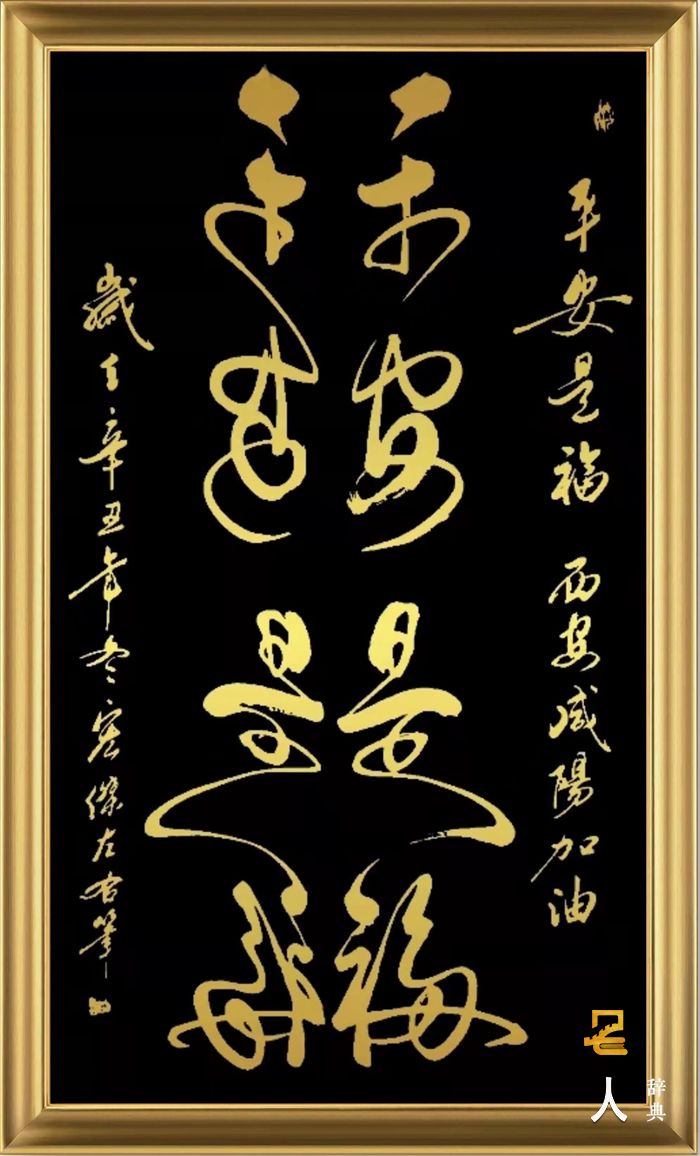 平安是福 西安咸陽加油
平安是福
平安是福
歲辛丑年冬宏傑左右筆
名人
辞典